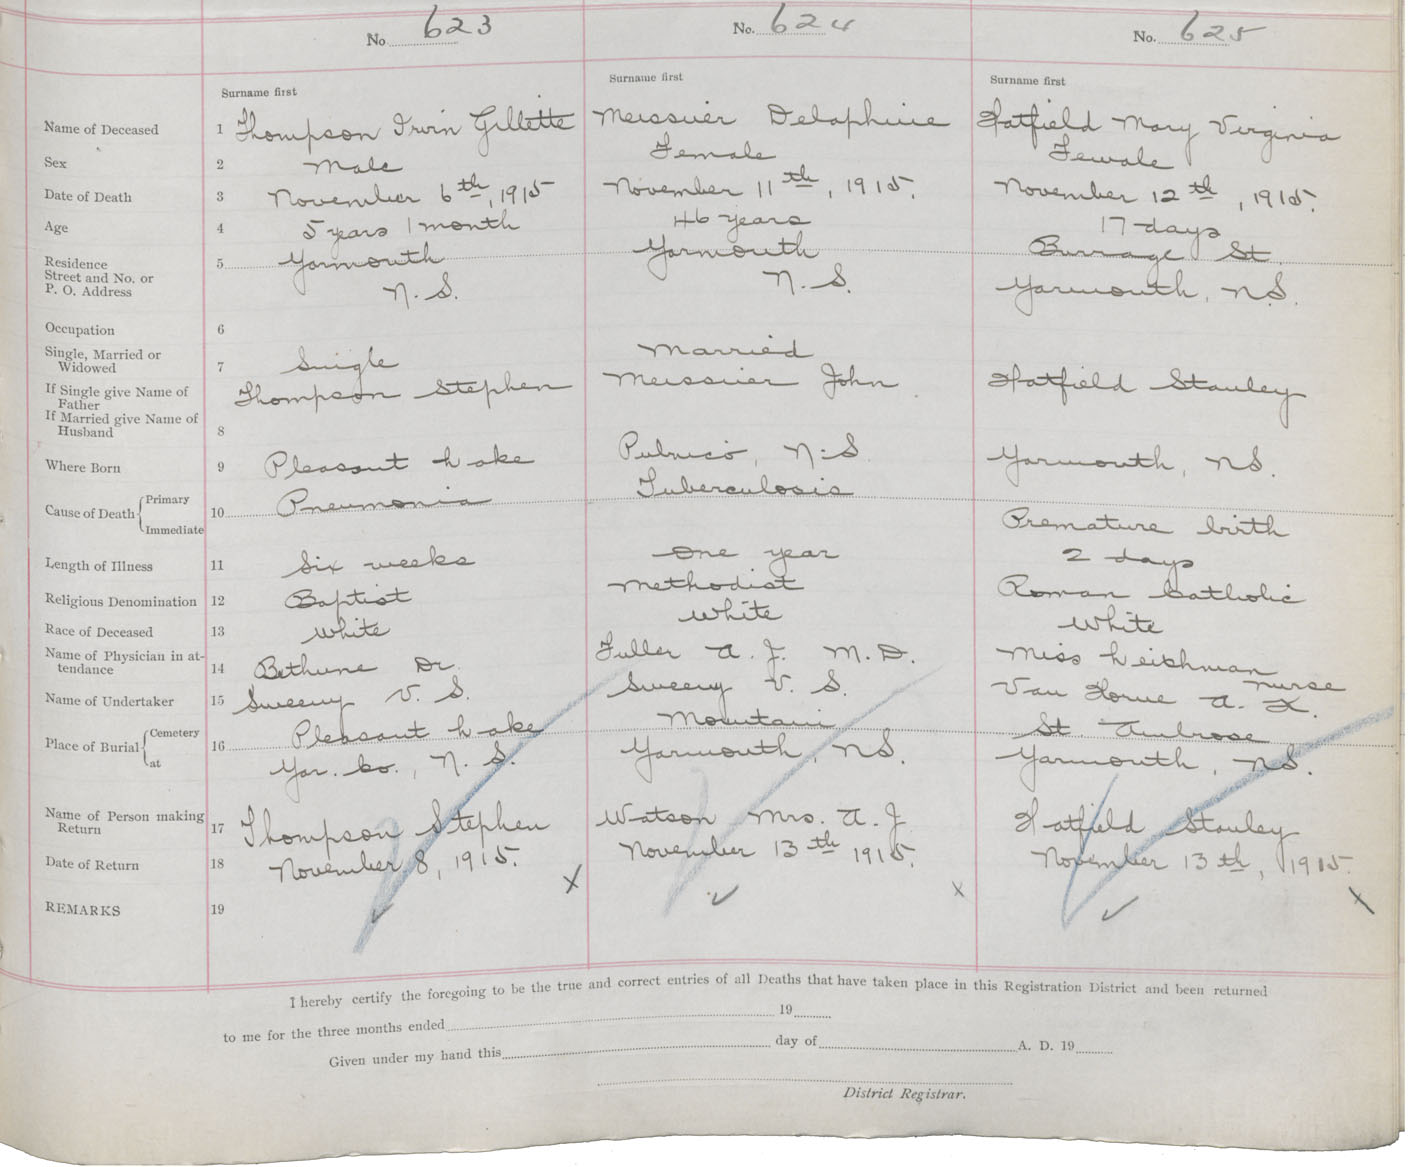 No 623 No. 624 No. 625
Surname first Surname first Surname first
Name of Deceased 1 Thompson Irvin Gillette Meissuier Delaphine Hatfield Mary Virginia
Sex 2 Male Female Female
Date of Death 3 November 6th, 1915 November 11th, 1915. November 12th, 1915.
Age 4 5 years 1 month 46 years 17 days
Residence 5 Yarmouth Yarmouth Burrage St.
Street and No. or
P. O. Address N.S. N.S. Yarmouth, N.S.
Occupation 6
Single, Married or
Widowed 7 Single Married
If Single give Name of
Father Thompson Stephen Meissuier John Hatfield Stanley
If Married give Name of
Husband 8
Where Born 9 Pleasant Lake Pubnico, N.S. Yarmouth, N.S.
Cause of Death Primary 10 Pneumonia Tuberculosis
Immediate Premature birth
Length of Illness 11 Six weeks One year 2 days
Religious Denomination 12 Baptist Methodist Roman Catholic
Race of Deceased 13 White White White
Name of Physician in at-
tendance 14 Bethune Dr. Fuller A. J. M.D. Miss Leishman nurse
Name of Undertaker 15 Sweeny V. S. Sweeny V. S. Van Horne A. K.
Place of Burial Cemetery 16 Pleasant Lake Mountain St. Ambrose
at Yar. Co., N.S. Yarmouth, N.S. Yarmouth, N.S.
Name of Person making
Return 17 Thompson Stephen Watson Mrs. A. J. Hatfield Stanley
Date of Return 18 November 8, 1915. November 13th 1915. November 13th, 1915.
REMARKS 19
I hereby certify the foregoing to be the true and correct entries of all Deaths that have taken place in this Registration District and been returned
to me for the three months ended 19
Given under my hand this day of A. D. 19
District Registrar.